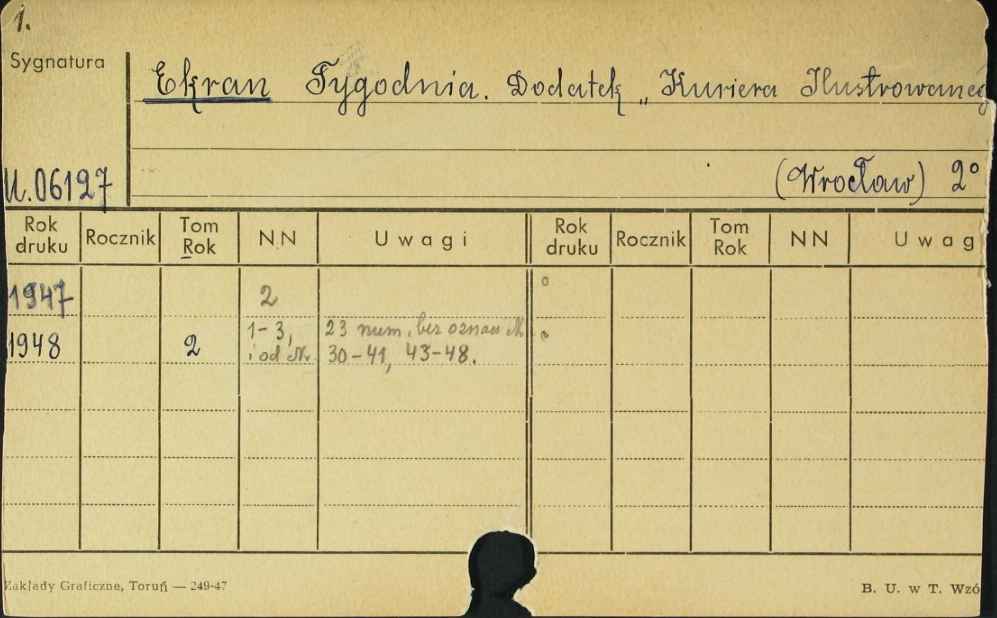 1.
Sygnatura
Ekran Tygodnia. Dodatek „Kuriera Ilustrowaneg
U.06127
(Wrocław) 2°
Rok druku Rocznik Tom Rok NN Uwagi Rok druku Rocznik Tom Rok NN Uwag
1947 2
1948 2 1-3, i od N. 23 num. bez oznacz N.
30-41, 43-48.
Zakłady Graficzne, Toruń — 249-47
B. U. w T. Wzó